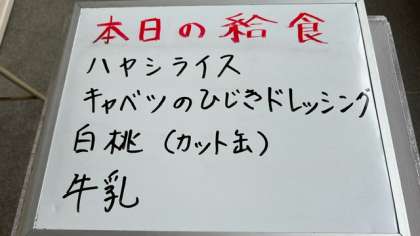 本日の給食
ハヤシライス
キャベツのひじきドレッシング
白桃（カット缶）
牛乳